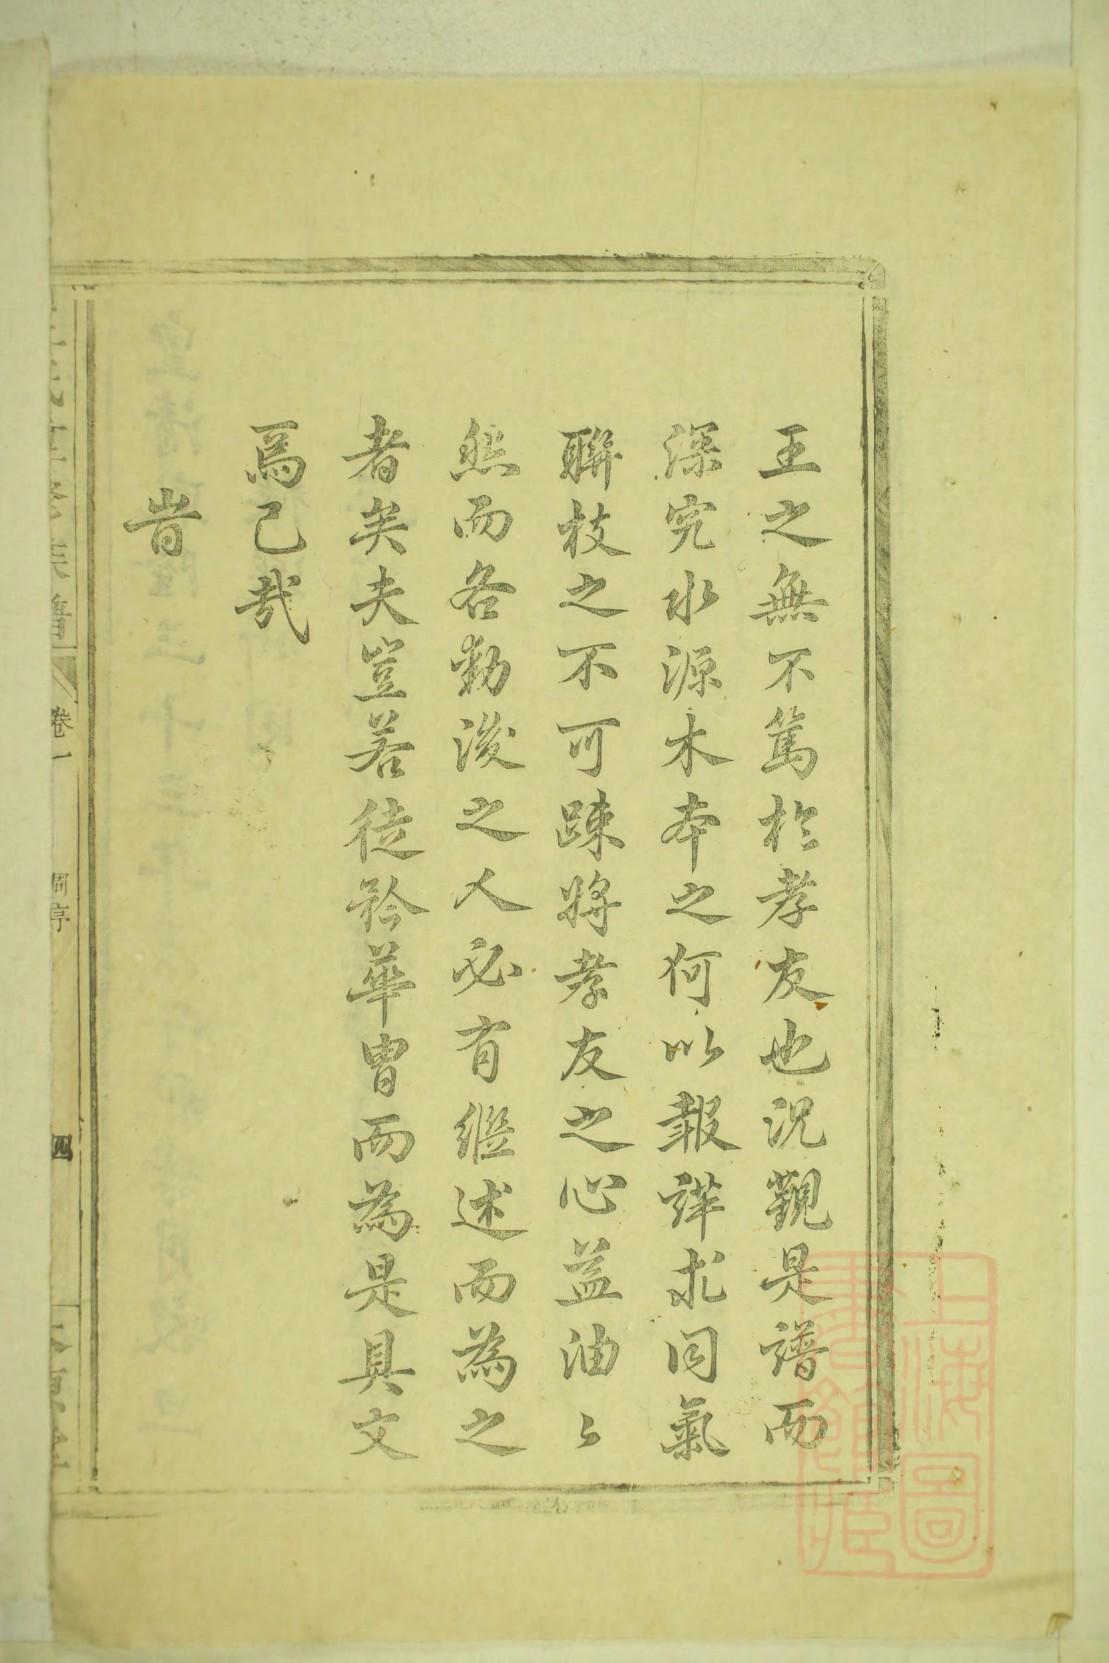 王之無不篤於孝友也況觀是譜而
深究水源木本之何以報詳求同氣
聯枝之不可踈將孝友之心益油〻
然而各勤後之人必有繼述而為之
者矣夫豈若徒矜華胄而為是具文
焉已哉
旹
卷一
四
上海圖
書館藏